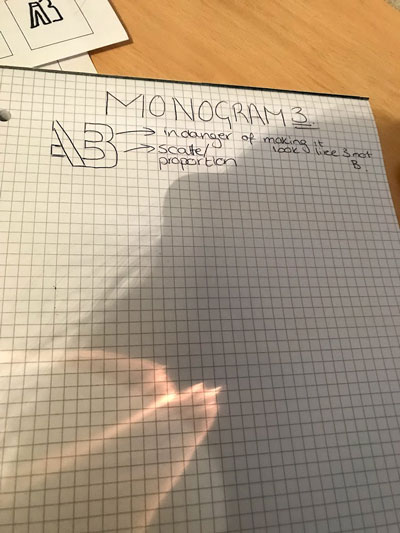 AB
MONOGRAM 3.
AB
in danger of making it
look like 3 not
B
scale/
proportion